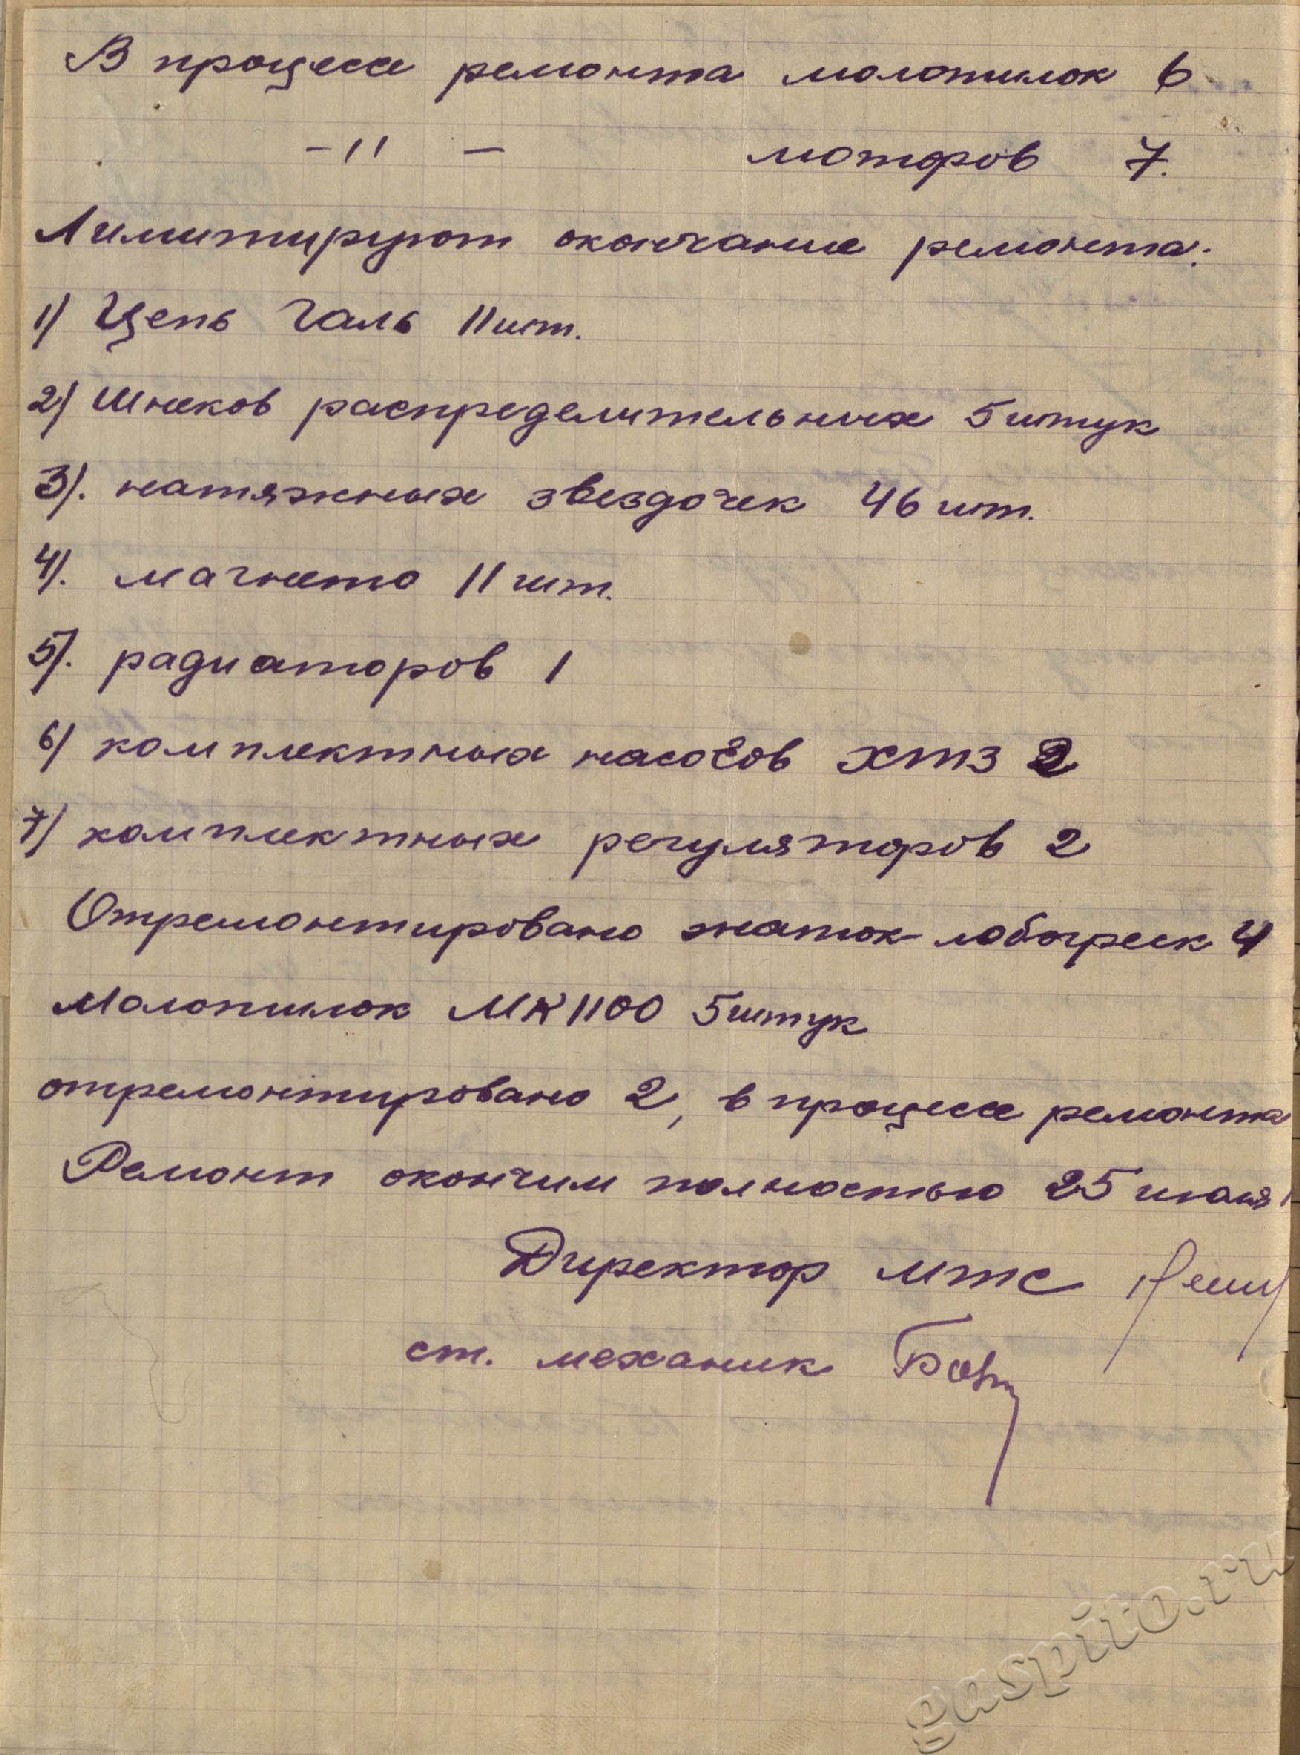 В процессе ремонта молотилок 6
-"- моторов 7.
Лимитируют окончание ремонта:
1) Цепь Галь 11 шт.
2) Шнеков распределительных 5 штук
3). натяжных звездочек 46 шт.
4). магнето 11 шт.
5). радиаторов 1
6) комплектных насосов ХТЗ 2
7) комплектных регуляторов 2
Отремонтировано жаток-лобогреек 4
Молотилок МК 1100 5 штук
отремонтировано 2, в процессе ремонта
Ремонт окончим полностью 25 июля
Директор МТС
ст. механик
gaspito.ru